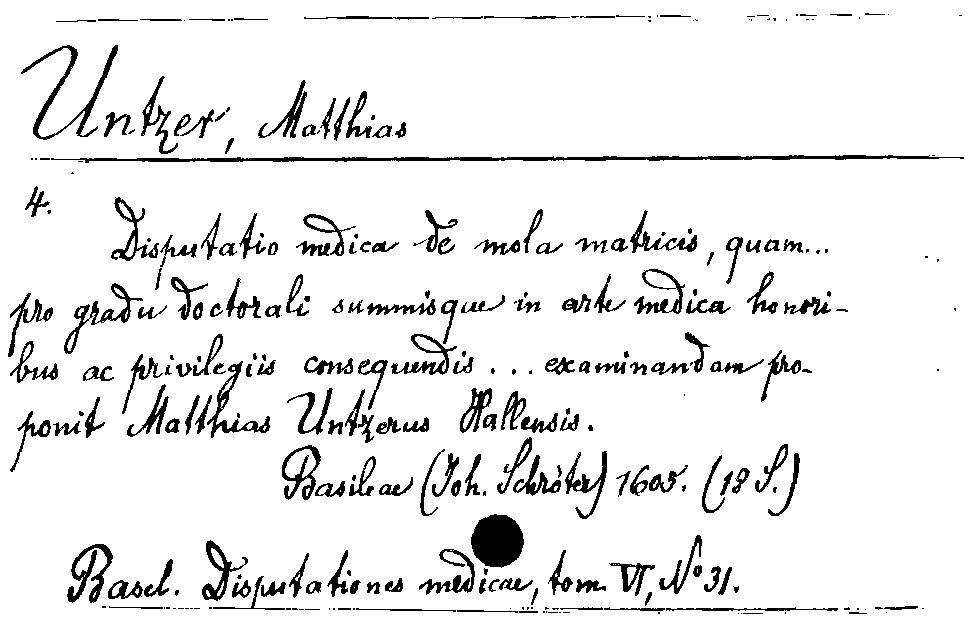 Untzer, Matthias
4.
Disputatio medica de mola matricis, quam...
pro gradu doctorali summisque in arte medica honori-
bus ac privilegiis consequendis ... examinandam pro-
ponit Matthias Untzerus Hallensis.
Basileae (Joh. Schröter) 1605. (18 S.)
Basel. Disputationes medicae, tom. VI, No 31.